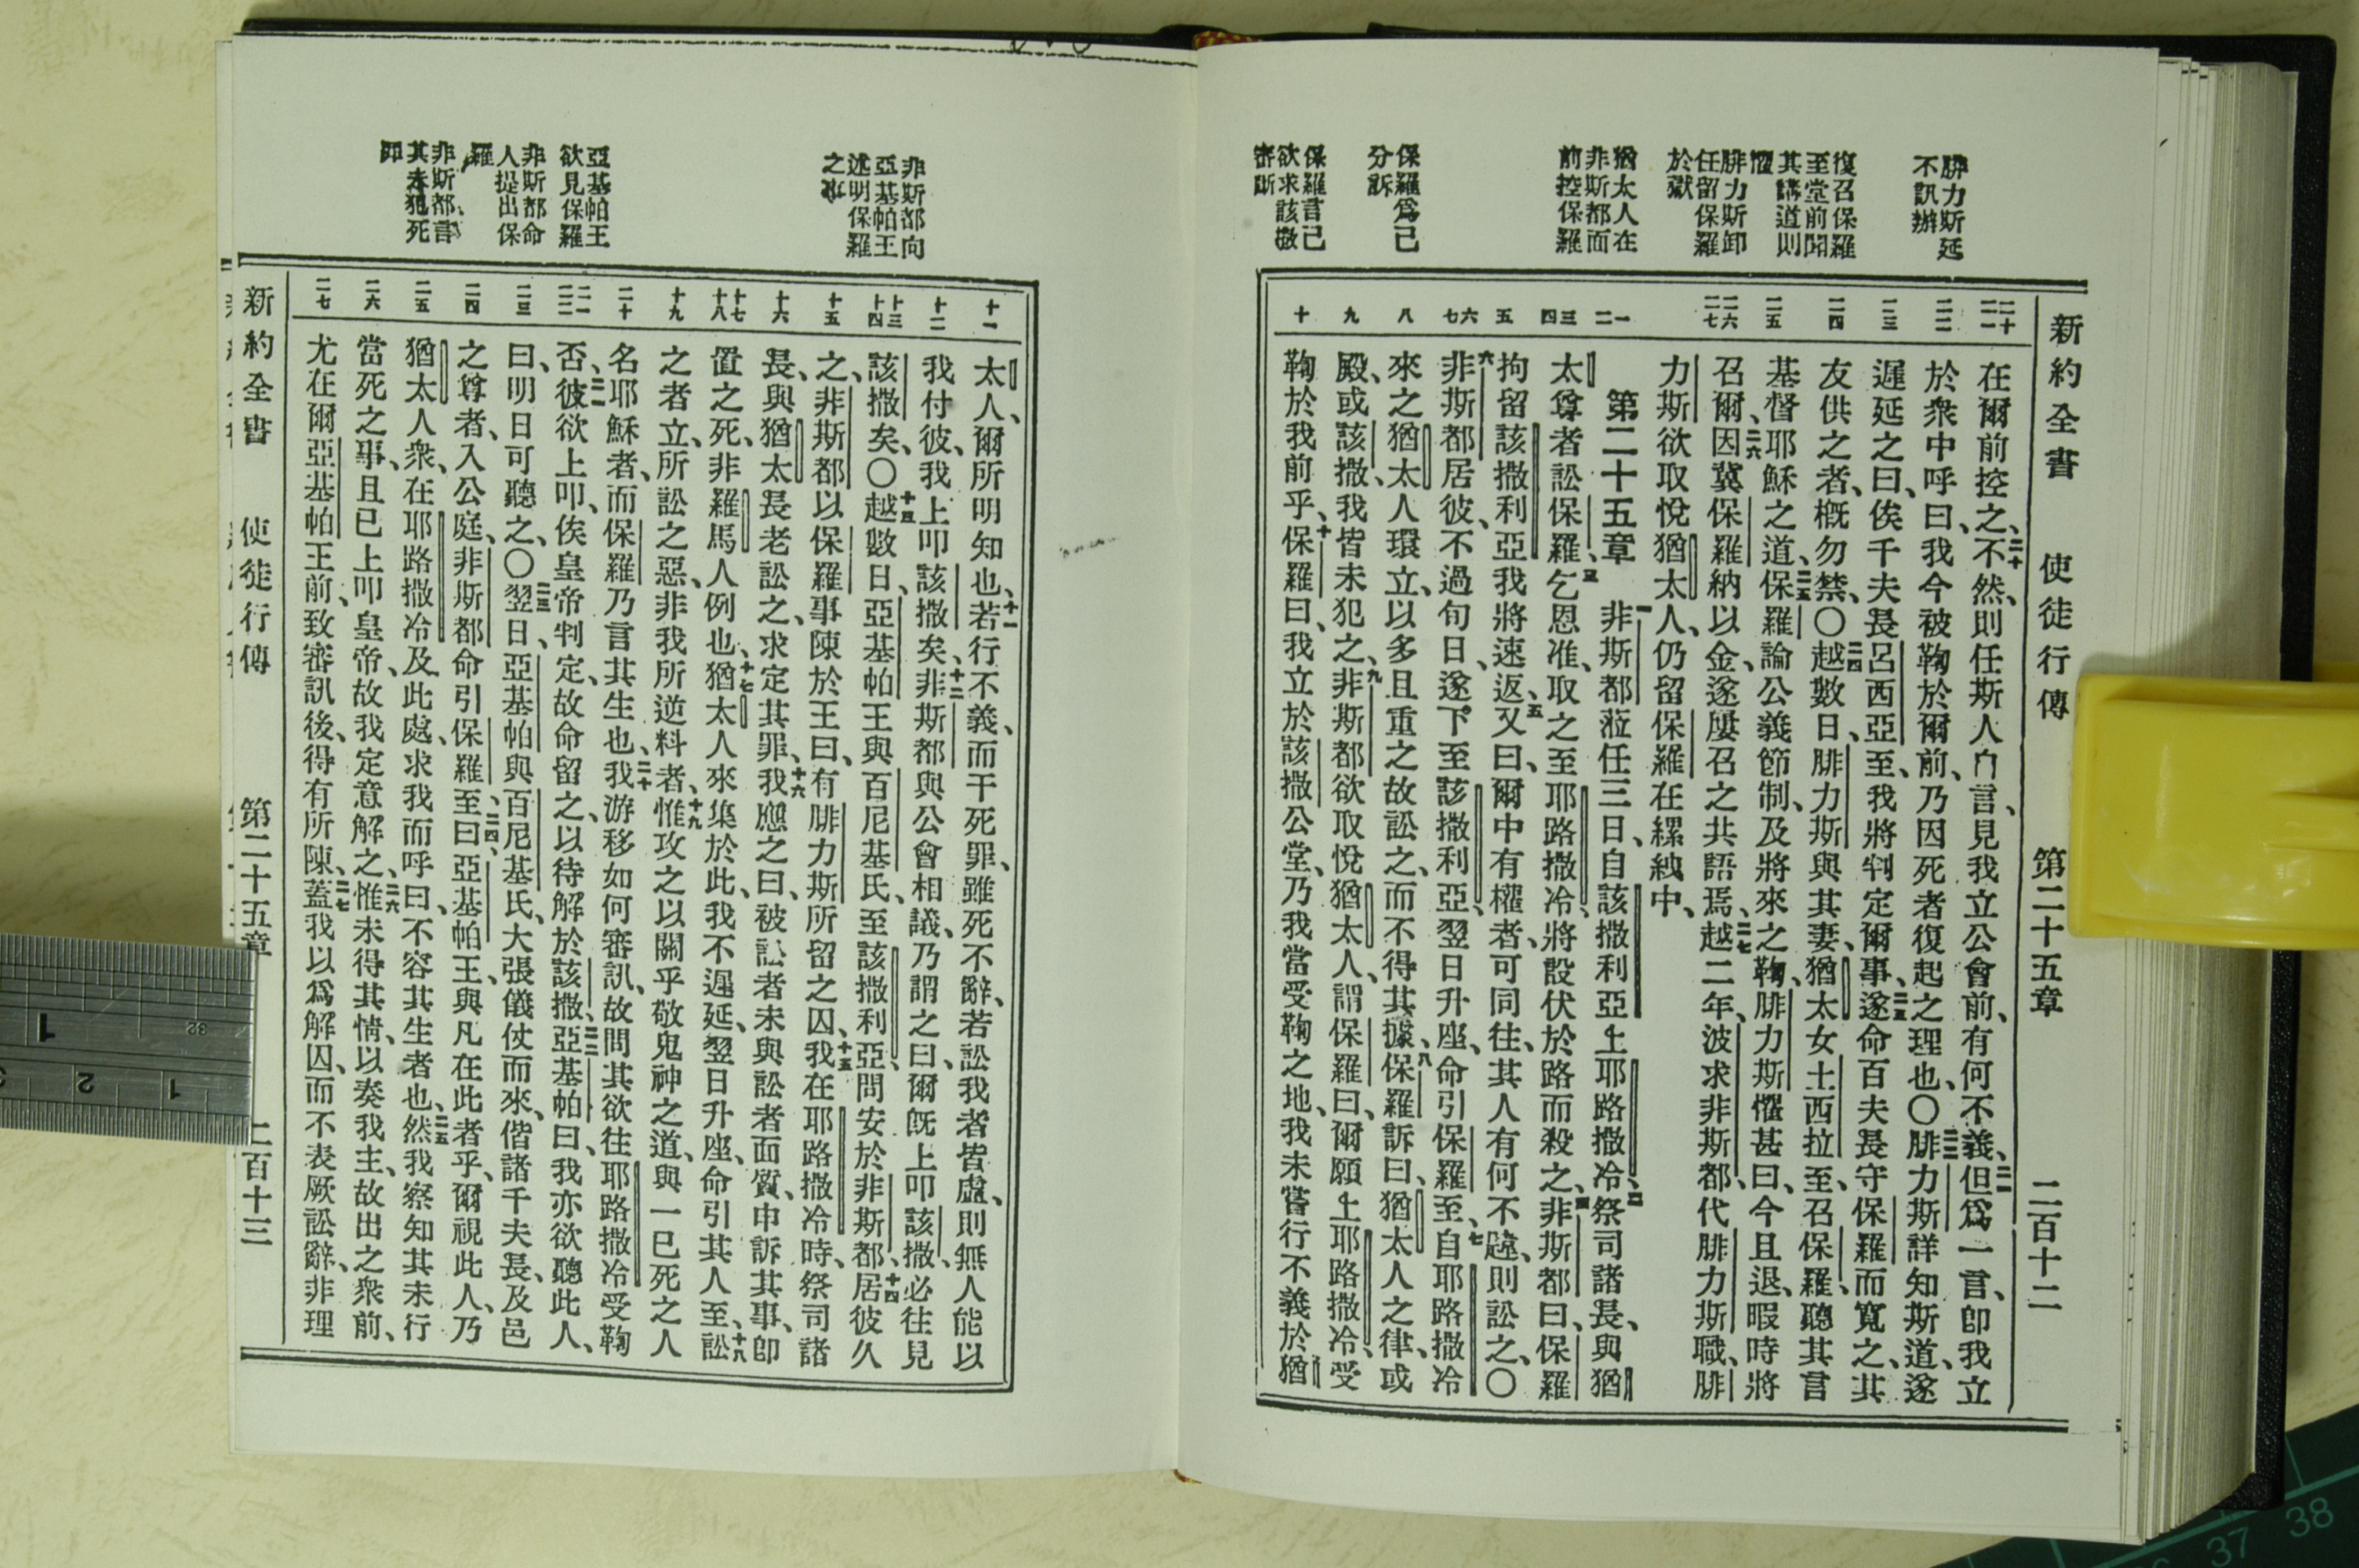 新約全書 使徒行傳 第二十五章 二百十二
腓力斯延
不訊辦
復召保羅
至堂前聞
其講道則
懼
腓力斯卸
任留保羅
於獄
猶太人在
非斯都面
前控保羅
保羅爲己
分訴
保羅言己
欲求該撒
審斷
二十
二一
二二
二三
二四
二五
二六
二七
一
二
三
四
五
六
七
八
九
十
在爾前控之、二十不然、則任斯人自言、見我立公會前、有何不義、二一但爲一言、卽我立
於衆中呼曰、我今被鞫於爾前、乃因死者復起之理也、〇二二腓力斯詳知斯道、遂
遲延之曰、俟千夫長呂西亞至、我將判定爾事、二三遂命百夫長守保羅而寬之、其
友供之者、槪勿禁、〇二四越數日、腓力斯與其妻、猶太女土西拉至、召保羅、聽其言
基督耶穌之道、二五保羅論公義節制、及將來之鞫、腓力斯懼甚曰、今且退、暇時將
召爾、二六因冀保羅納以金、遂屢召之共語焉、二七越二年、波求非斯都、代腓力斯職、腓
力斯欲取悅猶太人、仍留保羅在縲絏中、
第二十五章 一非斯都蒞任三日、自該撒利亞上耶路撒冷、二祭司諸長、與猶
太尊者訟保羅、三乞恩准、取之至耶路撒冷、將設伏於路而殺之、四非斯都曰、保羅
拘留該撒利亞我將速返、五又曰、爾中有權者、可同往、其人有何不韙、則訟之、〇
六非斯都居彼、不過旬日、遂下至該撒利亞、翌日升座、命引保羅至、七自耶路撒冷
來之猶太人環立、以多且重之故訟之、而不得其據、八保羅訴曰、猶太人之律、或
殿、或該撒、我皆未犯之、九非斯都欲取悅猶太人、謂保羅曰、爾願上耶路撒冷、受
鞫於我前乎、十保羅曰、我立於該撒公堂、乃我當受鞫之地、我未嘗行不義於猶
非斯都向
亞基帕王
述明保羅
之事
亞基帕王
欲見保羅
非斯都命
人提出保
羅
非斯都言
其未犯死
罪
十一
十二
十三
十四
十五
十六
十七
十八
十九
二十
二一
二二
二三
二四
二五
二六
二七
太人、爾所明知也、十一若行不義、而干死罪、雖死不辭、若訟我者皆虛、則無人能以
我付彼、我上叩該撒矣、十二非斯都與公會相議、乃謂之曰、爾旣上叩該撒、必往見
該撒矣、〇十三越數日、亞基帕王與百尼基氏、至該撒利亞、問安於非斯都、十四居彼久
之、非斯都以保羅事陳於王曰、有腓力斯所留之囚、十五我在耶路撒冷時、祭司諸
長、與猶太長老訟之、求定其罪、十六我應之曰、被訟者未與訟者面質、申訴其事、卽
置之死、非羅馬人例也、十七猶太人來集於此、我不遲延、翌日升座、命引其人至、十八訟
之者立、所訟之惡、非我所逆料者、十九惟攻之以關乎敬鬼神之道、與一已死之人
名耶穌者、而保羅乃言其生也、二十我游移如何審訊、故問其欲往耶路撒冷受鞫
否、二一彼欲上叩、俟皇帝判定、故命留之、以待解於該撒、二二亞基帕曰、我亦欲聽此人、
曰、明日可聽之、〇二三翌日、亞基帕與百尼基氏、大張儀仗而來、偕諸千夫長、及邑
之尊者、入公庭、非斯都命引保羅至、二四曰、亞基帕王、與凡在此者乎、爾視此人、乃
猶太人衆、在耶路撒冷及此處、求我而呼曰、不容其生者也、二五然我察知其未行
當死之事、且已上叩皇帝、故我定意解之、二六惟未得其情、以奏我主、故出之衆前、
尤在爾亞基帕王前、致審訊後、得有所陳、二七蓋我以爲解囚、而不表厥訟辭、非理
新約全書 使徒行傳 第二十五章 二百十三
1
2
1
32
37
38